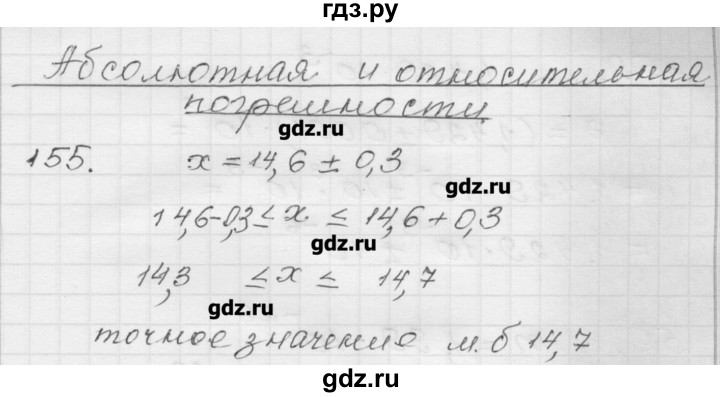 гдз.ру
Абсолютная и относительная
погрешности
gdz.ru
155. x = 14,6 ± 0,3
gdz.ru
14,6-0,3 ≤ x ≤ 14,6 + 0,3
gdz.ru
14,3 ≤ x ≤ 14,7
gdz.ru
точное значение м.б 14,7
gdz.ru